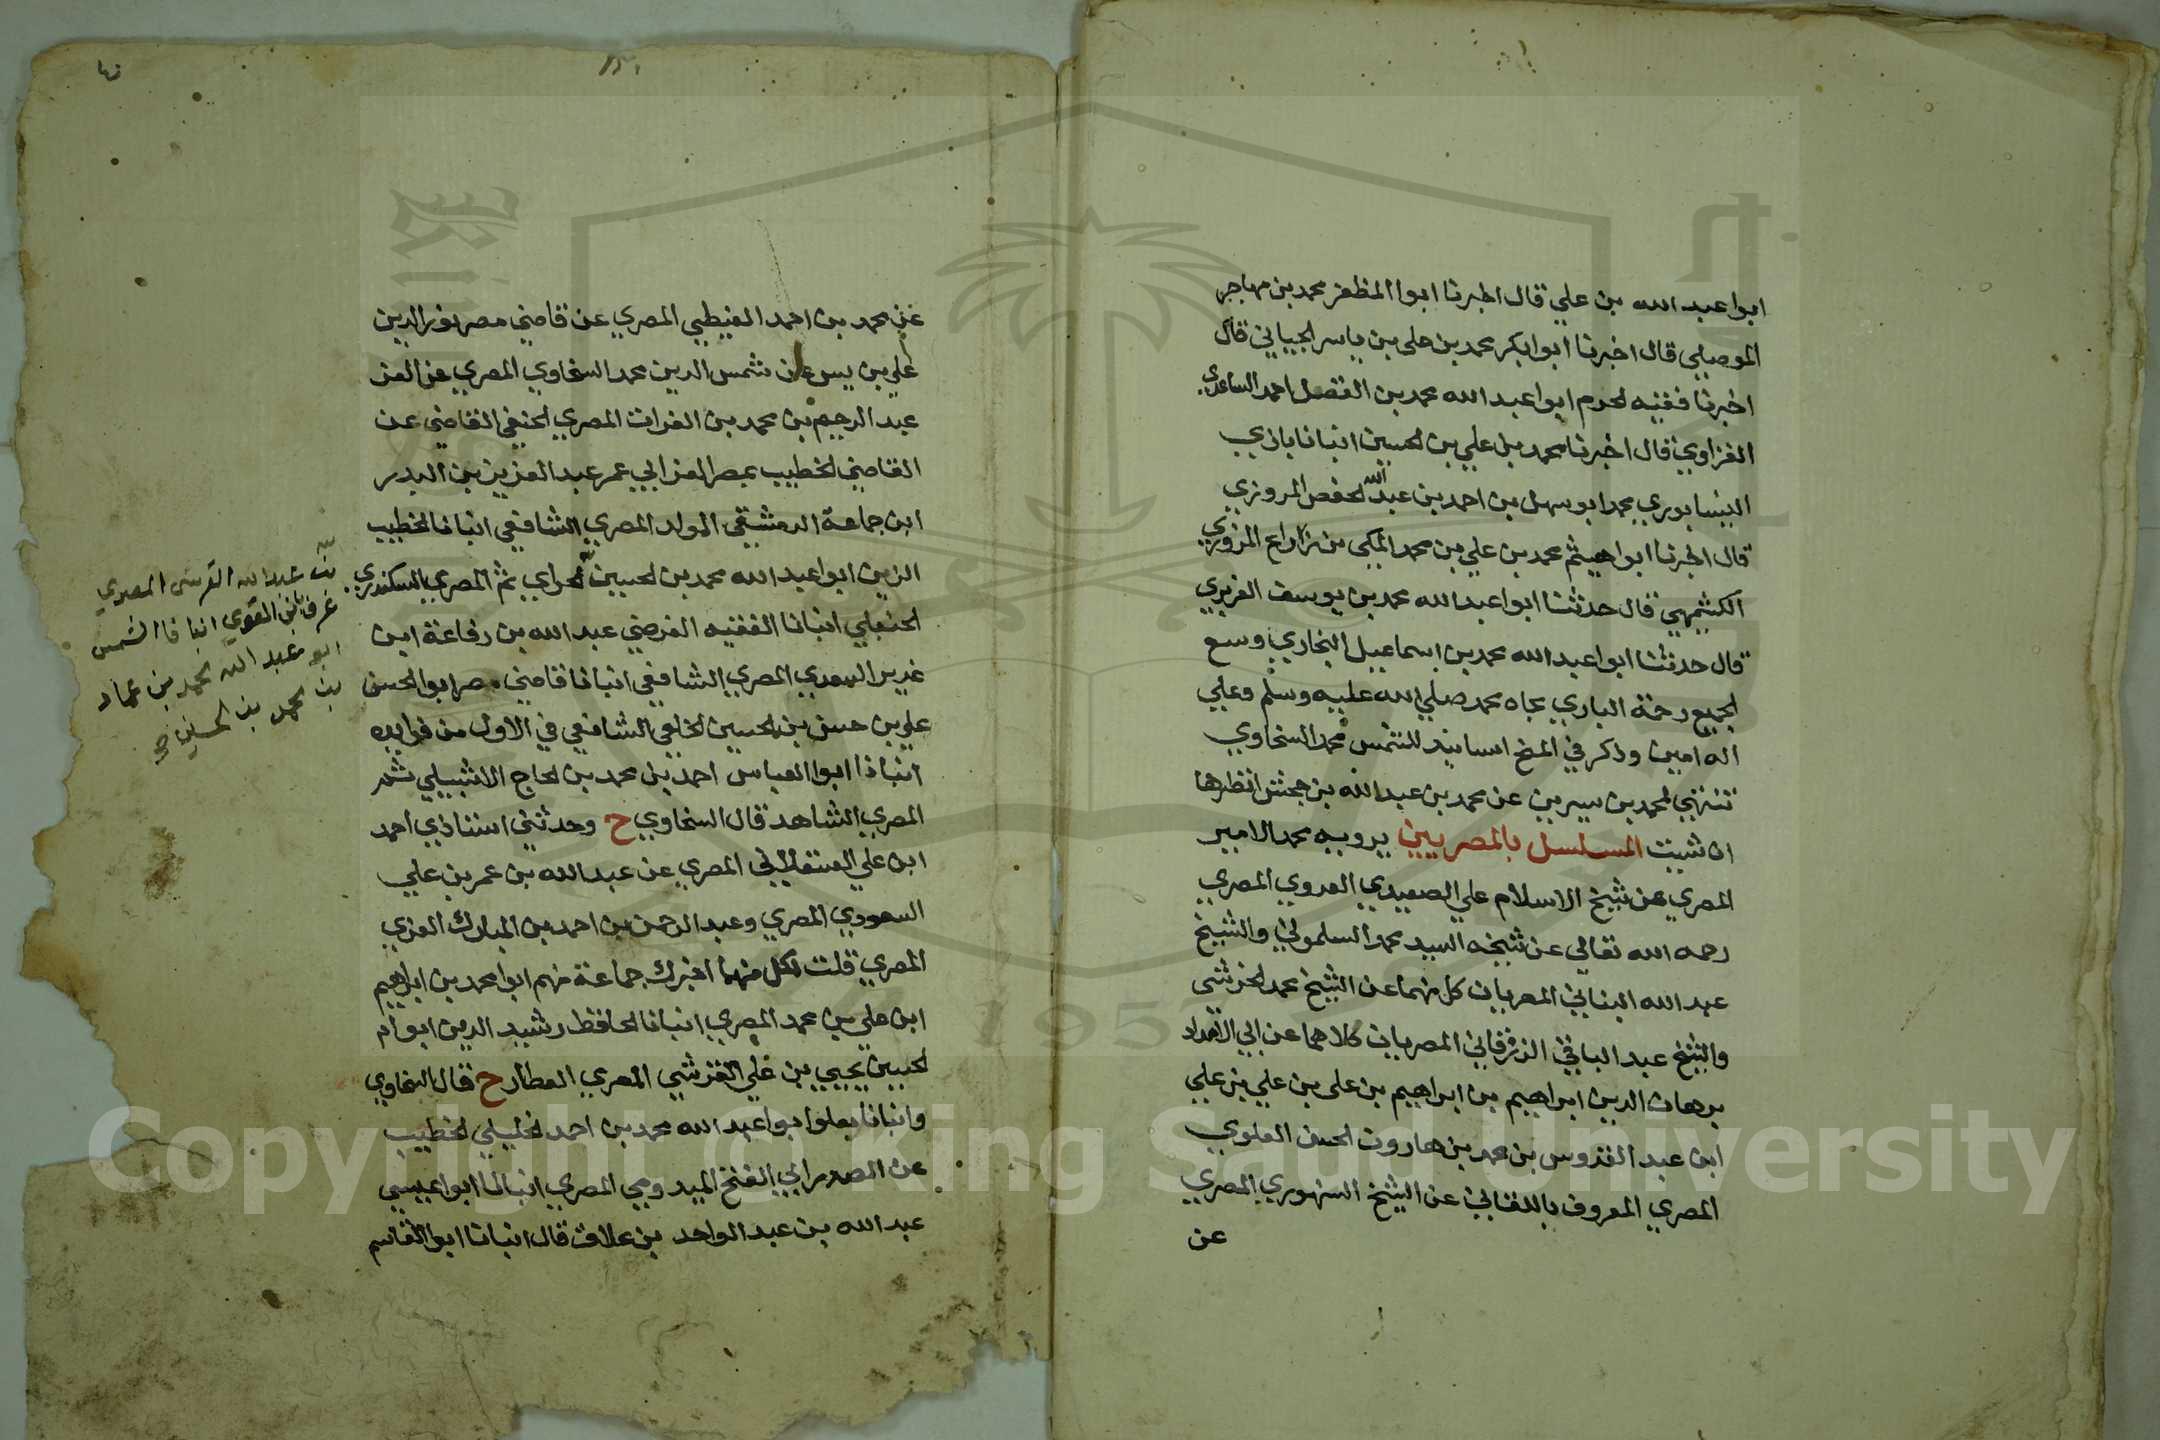 ابوا عبد الله بن علي قال اخبرنا ابوا المظفر محمد بن مهاجر
الموصلي قال اخبرنا ابوا بكر محمد بن علي بن ياسر الجياني قال
اخبرنا فقيه لحرم ابوا عبد الله محمد بن الفضل احمد الساعدي
الفزاوي قال اخبرنا محمد بن علي بن لحسين انبانا
النيسابوري محمد ابو سهل بن احمد بن عبد الله لحفص المروزي
قال اخبرنا ابوا هيثم محمد بن علي بن محمد المكي بن زراع المزوري
الكشمهي قال حدثنا ابوا عبد الله محمد بن يوسف الفربري
قال حدثنا ابوا عبد الله محمد بن اسماعيل البخاري وسع
لجميع رحمة الباري بجاه محمد صلي الله عليه وسلم وعلي
اله امين وذكر في المنح اسانيد للشمس محمد السخاوي
تنتهي لمحمد بن سيرين عن محمد بن عبد الله بن جحش انظرها
ان شيت المسلسل بالمصريين يرويه محمد الامير
المصري عن شيخ الاسلام علي الصعيدي العدوي المصري
رحمه الله تعالي عن شيخه السيد محمد السلموني والشيخ
عبد الله البناني المصريان كل منهما عن الشيخ محمد لخرشي
والشيخ عبد الباقي الزرقاني المصريان كلاهما عن ابي الامداد
برهان الدين ابراهيم بن ابراهيم بن علي بن علي بن علي
ابن عبد القدوس بن محمد بن هارون لحسن العلوي
المصري المعروف باللقاني عن الشيخ السنهوري المصري
عن
عن محمد بن احمد الغيطي المصري عن قاضي مصر نور الدين
علي بن يس عن شمس الدين محمد السخاوي المصري عن العز
عبد الرحيم بن محمد بن الفرات المصري لحنفي القاضي عن
القاضي لخطيب بمصر العز ابي عمر عبد العزيز بن البدر
ابن جماعة الدمشقي المولد المصري الشافعي انبانا لخطيب
الزين ابوا عبد الله محمد بن لحسين ثم المصري السكندري
لحنبلي انبانا الفقيه الفرضي عبد الله بن رفاعة ابن
غدير السعدي المصري الشافعي انبانا قاضي مصر ابو الحسن
علي بن حسن بن لحسين لخلعي الشافعي في الاول من فوايده
انبانا ابوا العباس احمد بن محمد بن لحاج الاشبيلي ثم
المصري الشاهد قال السخاوي ح وحدثني استاذي احمد
ابن علي العسقلاني المصري عن عبد الله بن عمر بن علي
السعودي المصري وعبد الرحمن بن احمد بن المبارك الغزي
المصري قلت لكل منهما اخبرك جماعة منهم ابوا محمد بن ابراهيم
ابن علي بن محمد المصري انبانا لحافظ رشيد الدين ابو ام
لحسين يحيي بن علي القرشي المصري العطار ح قال السخاوي
وانبانا بعلو ابوا عبد الله محمد بن احمد لخليلي لخطيب
عن الصدر ابي الفتح الميدومي المصري انبانا ابوا عيسي
عبد الله بن عبد الواحد بن علاق قال انبانا ابوا القاسم
بن عبد الله القرشي المصري
عرف بابن القوي انبانا الشمس
ابو عبد الله محمد بن عماد
بن محمد بن الحسين صح
Copyright © King Saud University
1957